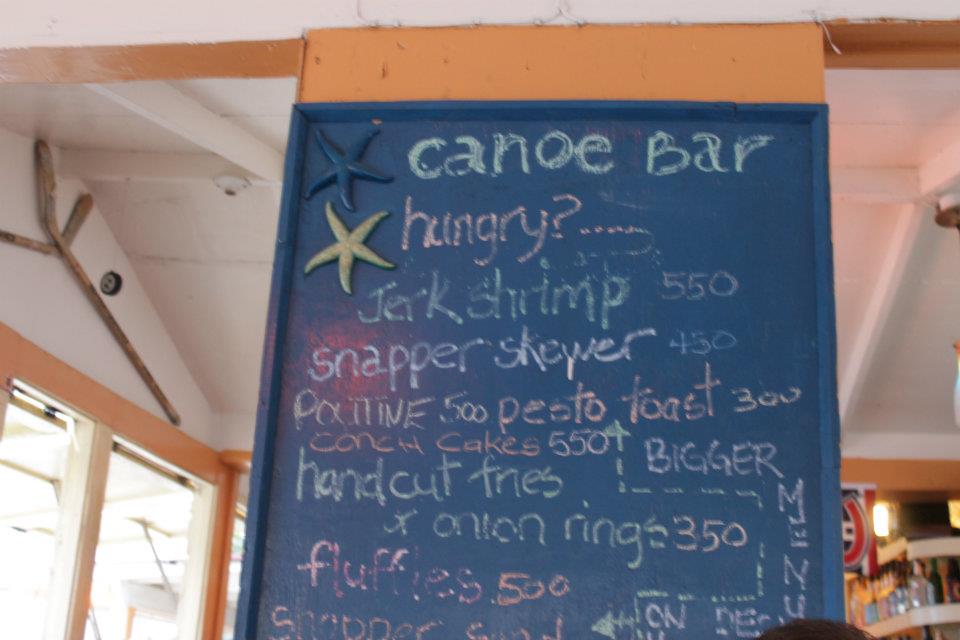 canoe Bar
hungry?
Jerk shrimp 550
snapper skewer 450
POUTINE 500 pesto toast 300
conch cakes 550
BIGGER
handcut fries
x onion rings 350
MENU
fluffies 500
snapper
ON